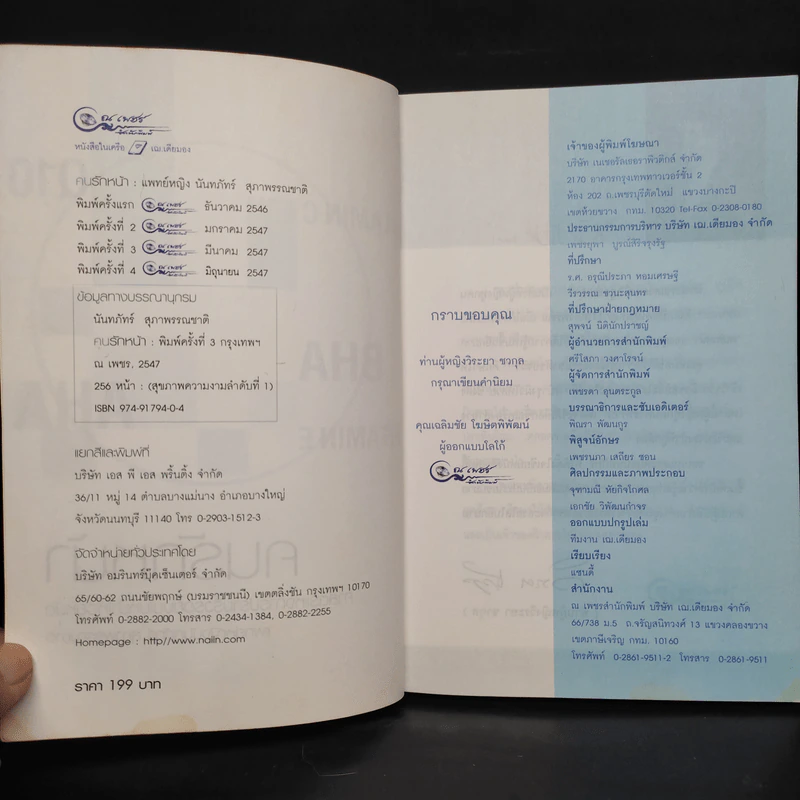 ณ เพชร
สำนักพิมพ์
หนังสือในเครือ เฌ.เดียมอง
คนรักหน้า : แพทย์หญิง นันทภัทร์ สุภาพรรณชาติ
พิมพ์ครั้งแรก ณ เพชร สำนักพิมพ์ ธันวาคม 2546
พิมพ์ครั้งที่ 2 ณ เพชร สำนักพิมพ์ มกราคม 2547
พิมพ์ครั้งที่ 3 ณ เพชร สำนักพิมพ์ มีนาคม 2547
พิมพ์ครั้งที่ 4 ณ เพชร สำนักพิมพ์ มิถุนายน 2547
ข้อมูลทางบรรณานุกรม
นันทภัทร์ สุภาพรรณชาติ
คนรักหน้า : พิมพ์ครั้งที่ 3 กรุงเทพฯ
ณ เพชร, 2547
256 หน้า : (สุขภาพความงามลำดับที่ 1)
ISBN 974-91794-0-4
แยกสีและพิมพ์ที่
บริษัท เอส พี เอส พริ้นติ้ง จำกัด
36/11 หมู่ 14 ตำบลบางแม่นาง อำเภอบางใหญ่
จังหวัดนนทบุรี 11140 โทร 0-2903-1512-3
จัดจำหน่ายทั่วประเทศโดย
บริษัท อมรินทร์บุ๊คเซ็นเตอร์ จำกัด
65/60-62 ถนนชัยพฤกษ์ (บรมราชชนนี) เขตตลิ่งชัน กรุงเทพฯ 10170
โทรศัพท์ 0-2882-2000 โทรสาร 0-2434-1384, 0-2882-2255
Homepage : http//www.naiin.com
ราคา 199 บาท
กราบขอบคุณ
ท่านผู้หญิงวิระยา ชวกุล
กรุณาเขียนคำนิยม
คุณเฉลิมชัย โฆษิตพิพัฒน์
ผู้ออกแบบโลโก้
ณ เพชร
สำนักพิมพ์
เจ้าของผู้พิมพ์โฆษณา
บริษัท เนเชอรัลเธอราพิวติกส์ จำกัด
2170 อาคารกรุงเทพทาวเวอร์ชั้น 2
ห้อง 202 ถ.เพชรบุรีตัดใหม่ แขวงบางกะปิ
เขตห้วยขวาง กทม. 10320 Tel-Fax 0-2308-0180
ประธานกรรมการบริหาร บริษัท เฌ.เดียมอง จำกัด
เพชรยุพา บูรณ์สิริจรุงรัฐ
ที่ปรึกษา
ร.ศ. อรุณีประภา หอมเศรษฐี
วีรวรรณ ชวนะสุนทร
ที่ปรึกษาฝ่ายกฎหมาย
สุพจน์ นิตินักปราชญ์
ผู้อำนวยการสำนักพิมพ์
ศรีโสภา วงศาโรจน์
ผู้จัดการสำนักพิมพ์
เพชรดา อุนตระกูล
บรรณาธิการและซับเอดิเตอร์
พิณรา พัฒนกูร
พิสูจน์อักษร
เพชรนภา เสถียร ซอน
ศิลปกรรมและภาพประกอบ
จุฑามณี หัยกิจโกศล
เอกชัย วิพัฒนกำจร
ออกแบบปกรูปเล่ม
ทีมงาน เฌ.เดียมอง
เรียบเรียง
แซนดี้
สำนักงาน
ณ เพชรสำนักพิมพ์ บริษัท เฌ.เดียมอง จำกัด
66/738 ม.5 ถ.จรัญสนิทวงศ์ 13 แขวงคลองขวาง
เขตภาษีเจริญ กทม. 10160
โทรศัพท์ 0-2861-9511-2 โทรสาร 0-2861-9511